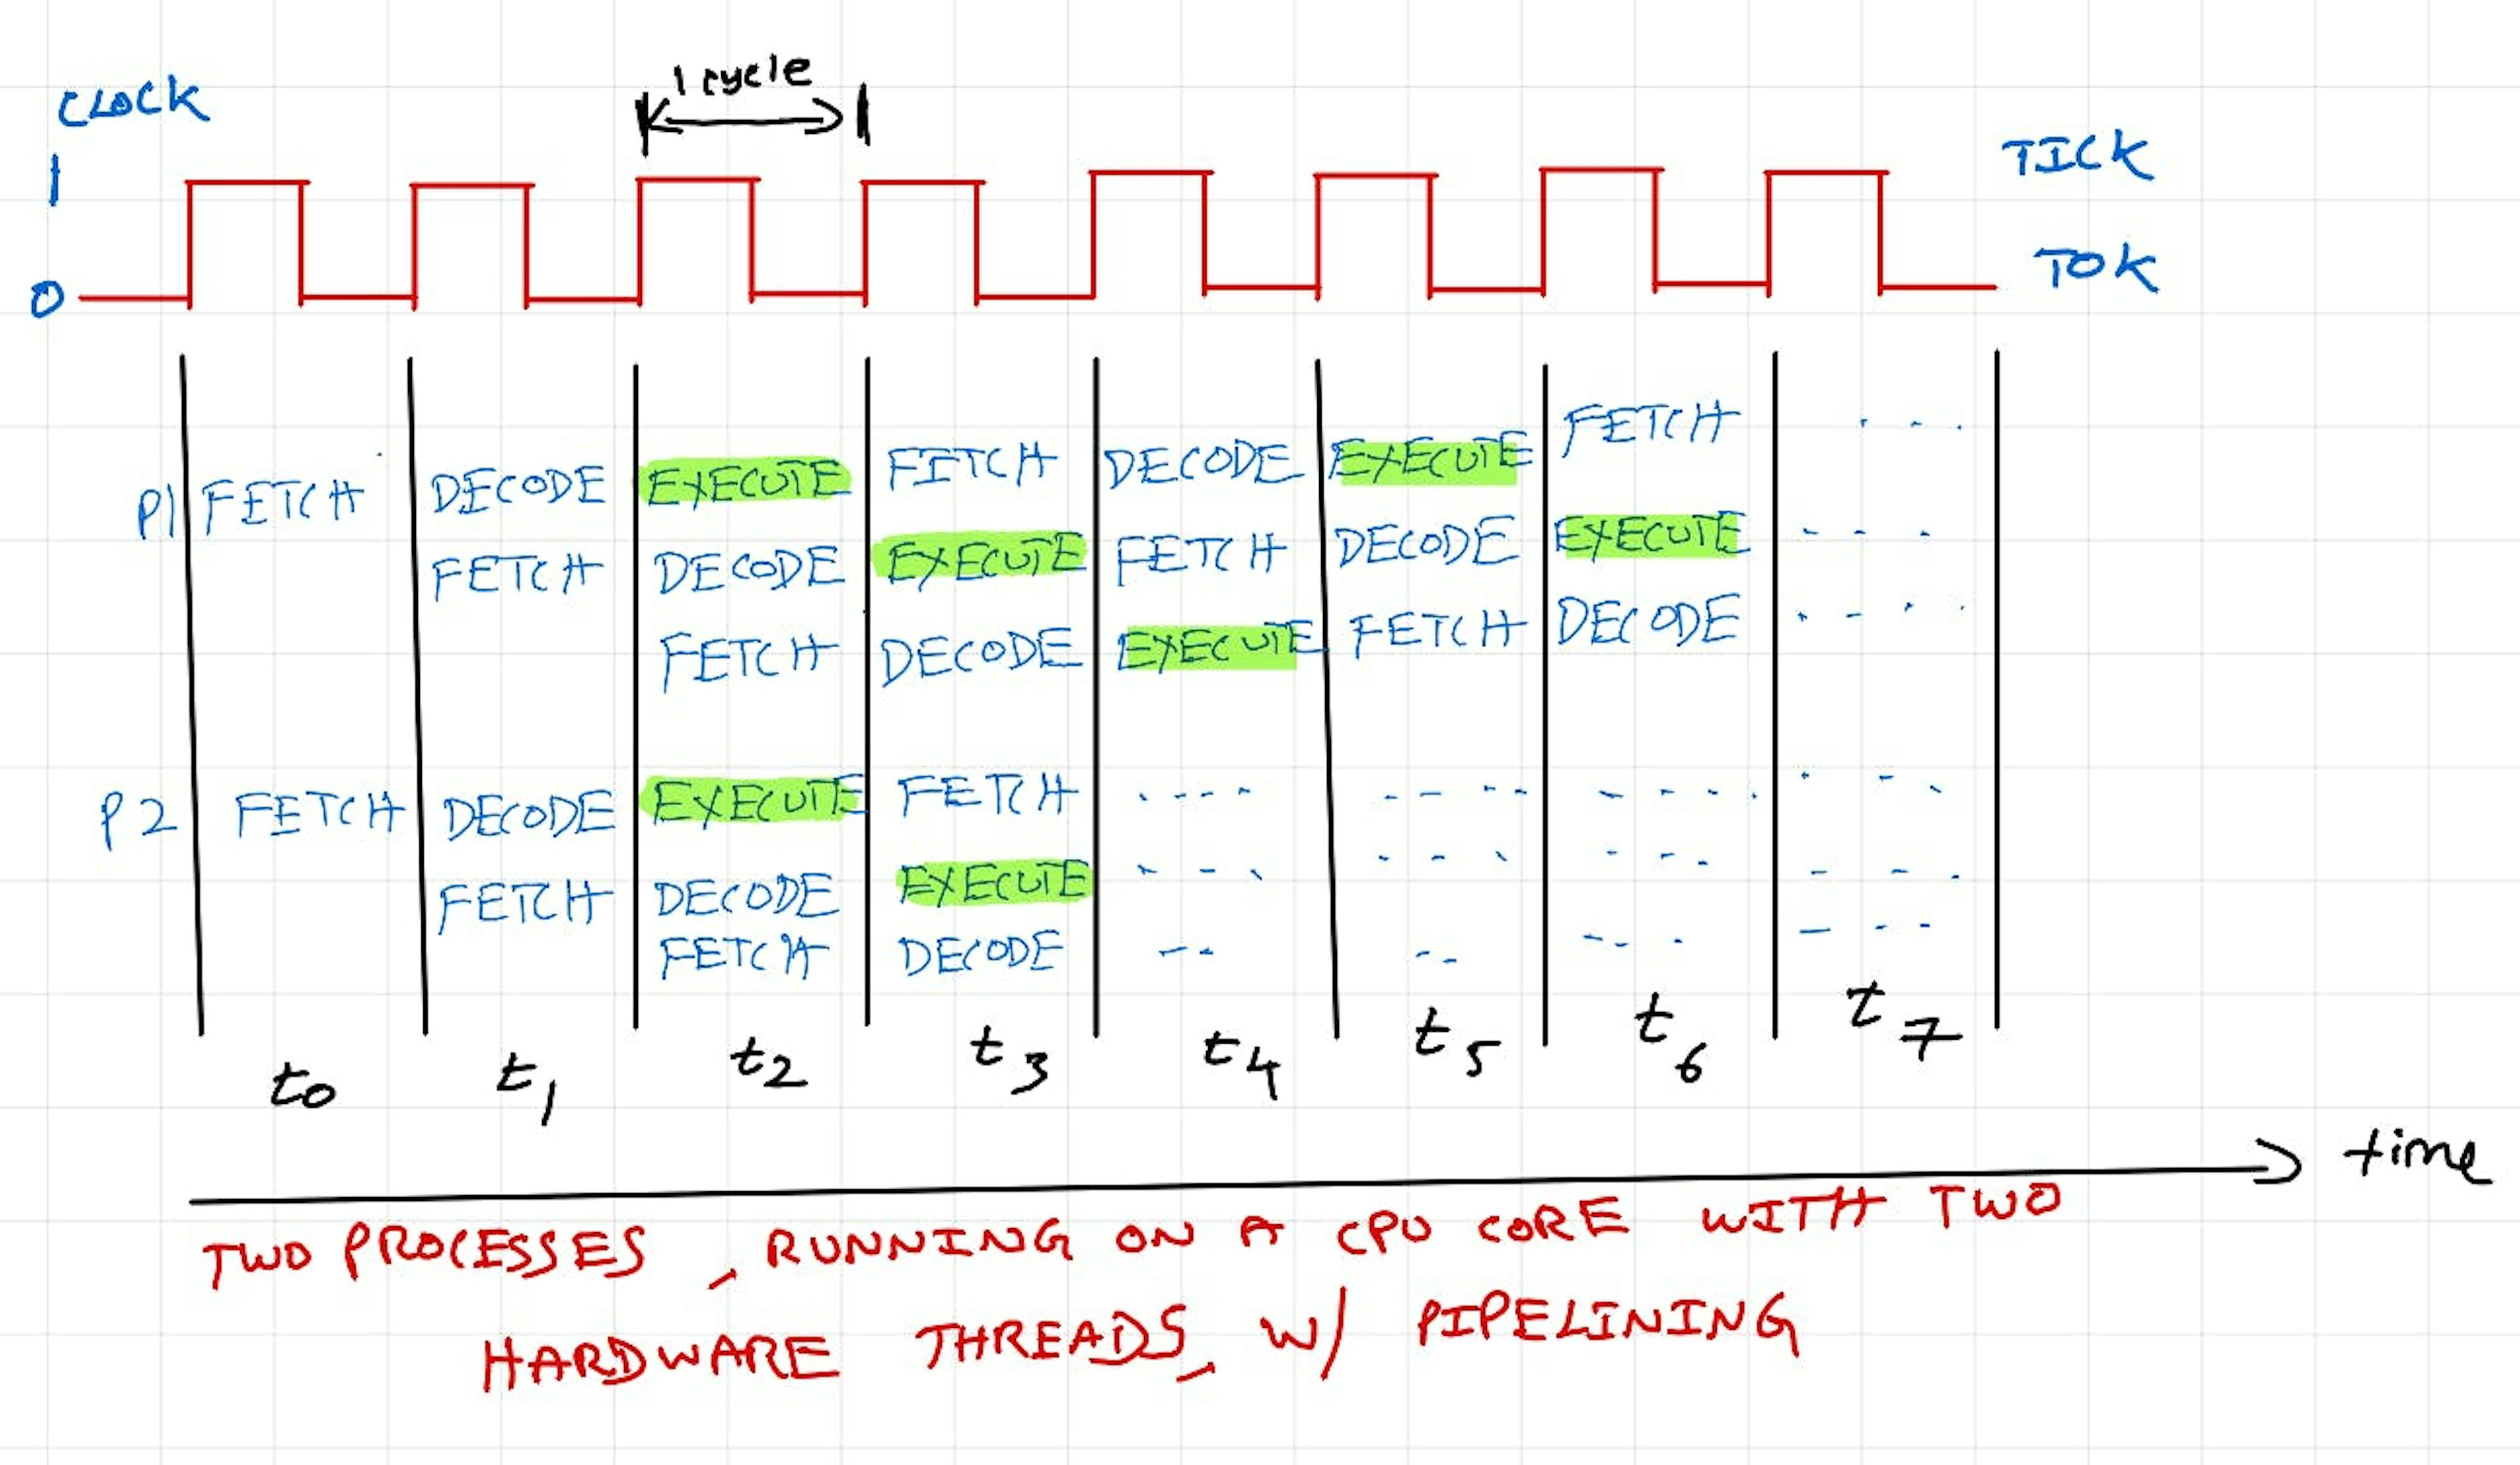 CLOCK
1 cycle
1
TICK
0
TOK
FETCH . . .
P1 FETCH DECODE EXECUTE FETCH DECODE EXECUTE
FETCH DECODE EXECUTE FETCH DECODE EXECUTE - - -
FETCH DECODE EXECUTE FETCH DECODE . - . .
P2 FETCH DECODE EXECUTE FETCH . - - - - - - - - - - - . . - .
FETCH DECODE EXECUTE - - - - - - - - - - - -
FETCH DECODE - - - - - - - - - -
t0 t1 t2 t3 t4 t5 t6 t7
time
TWO PROCESSES, RUNNING ON A CPU CORE WITH TWO
HARDWARE THREADS, W/ PIPELINING